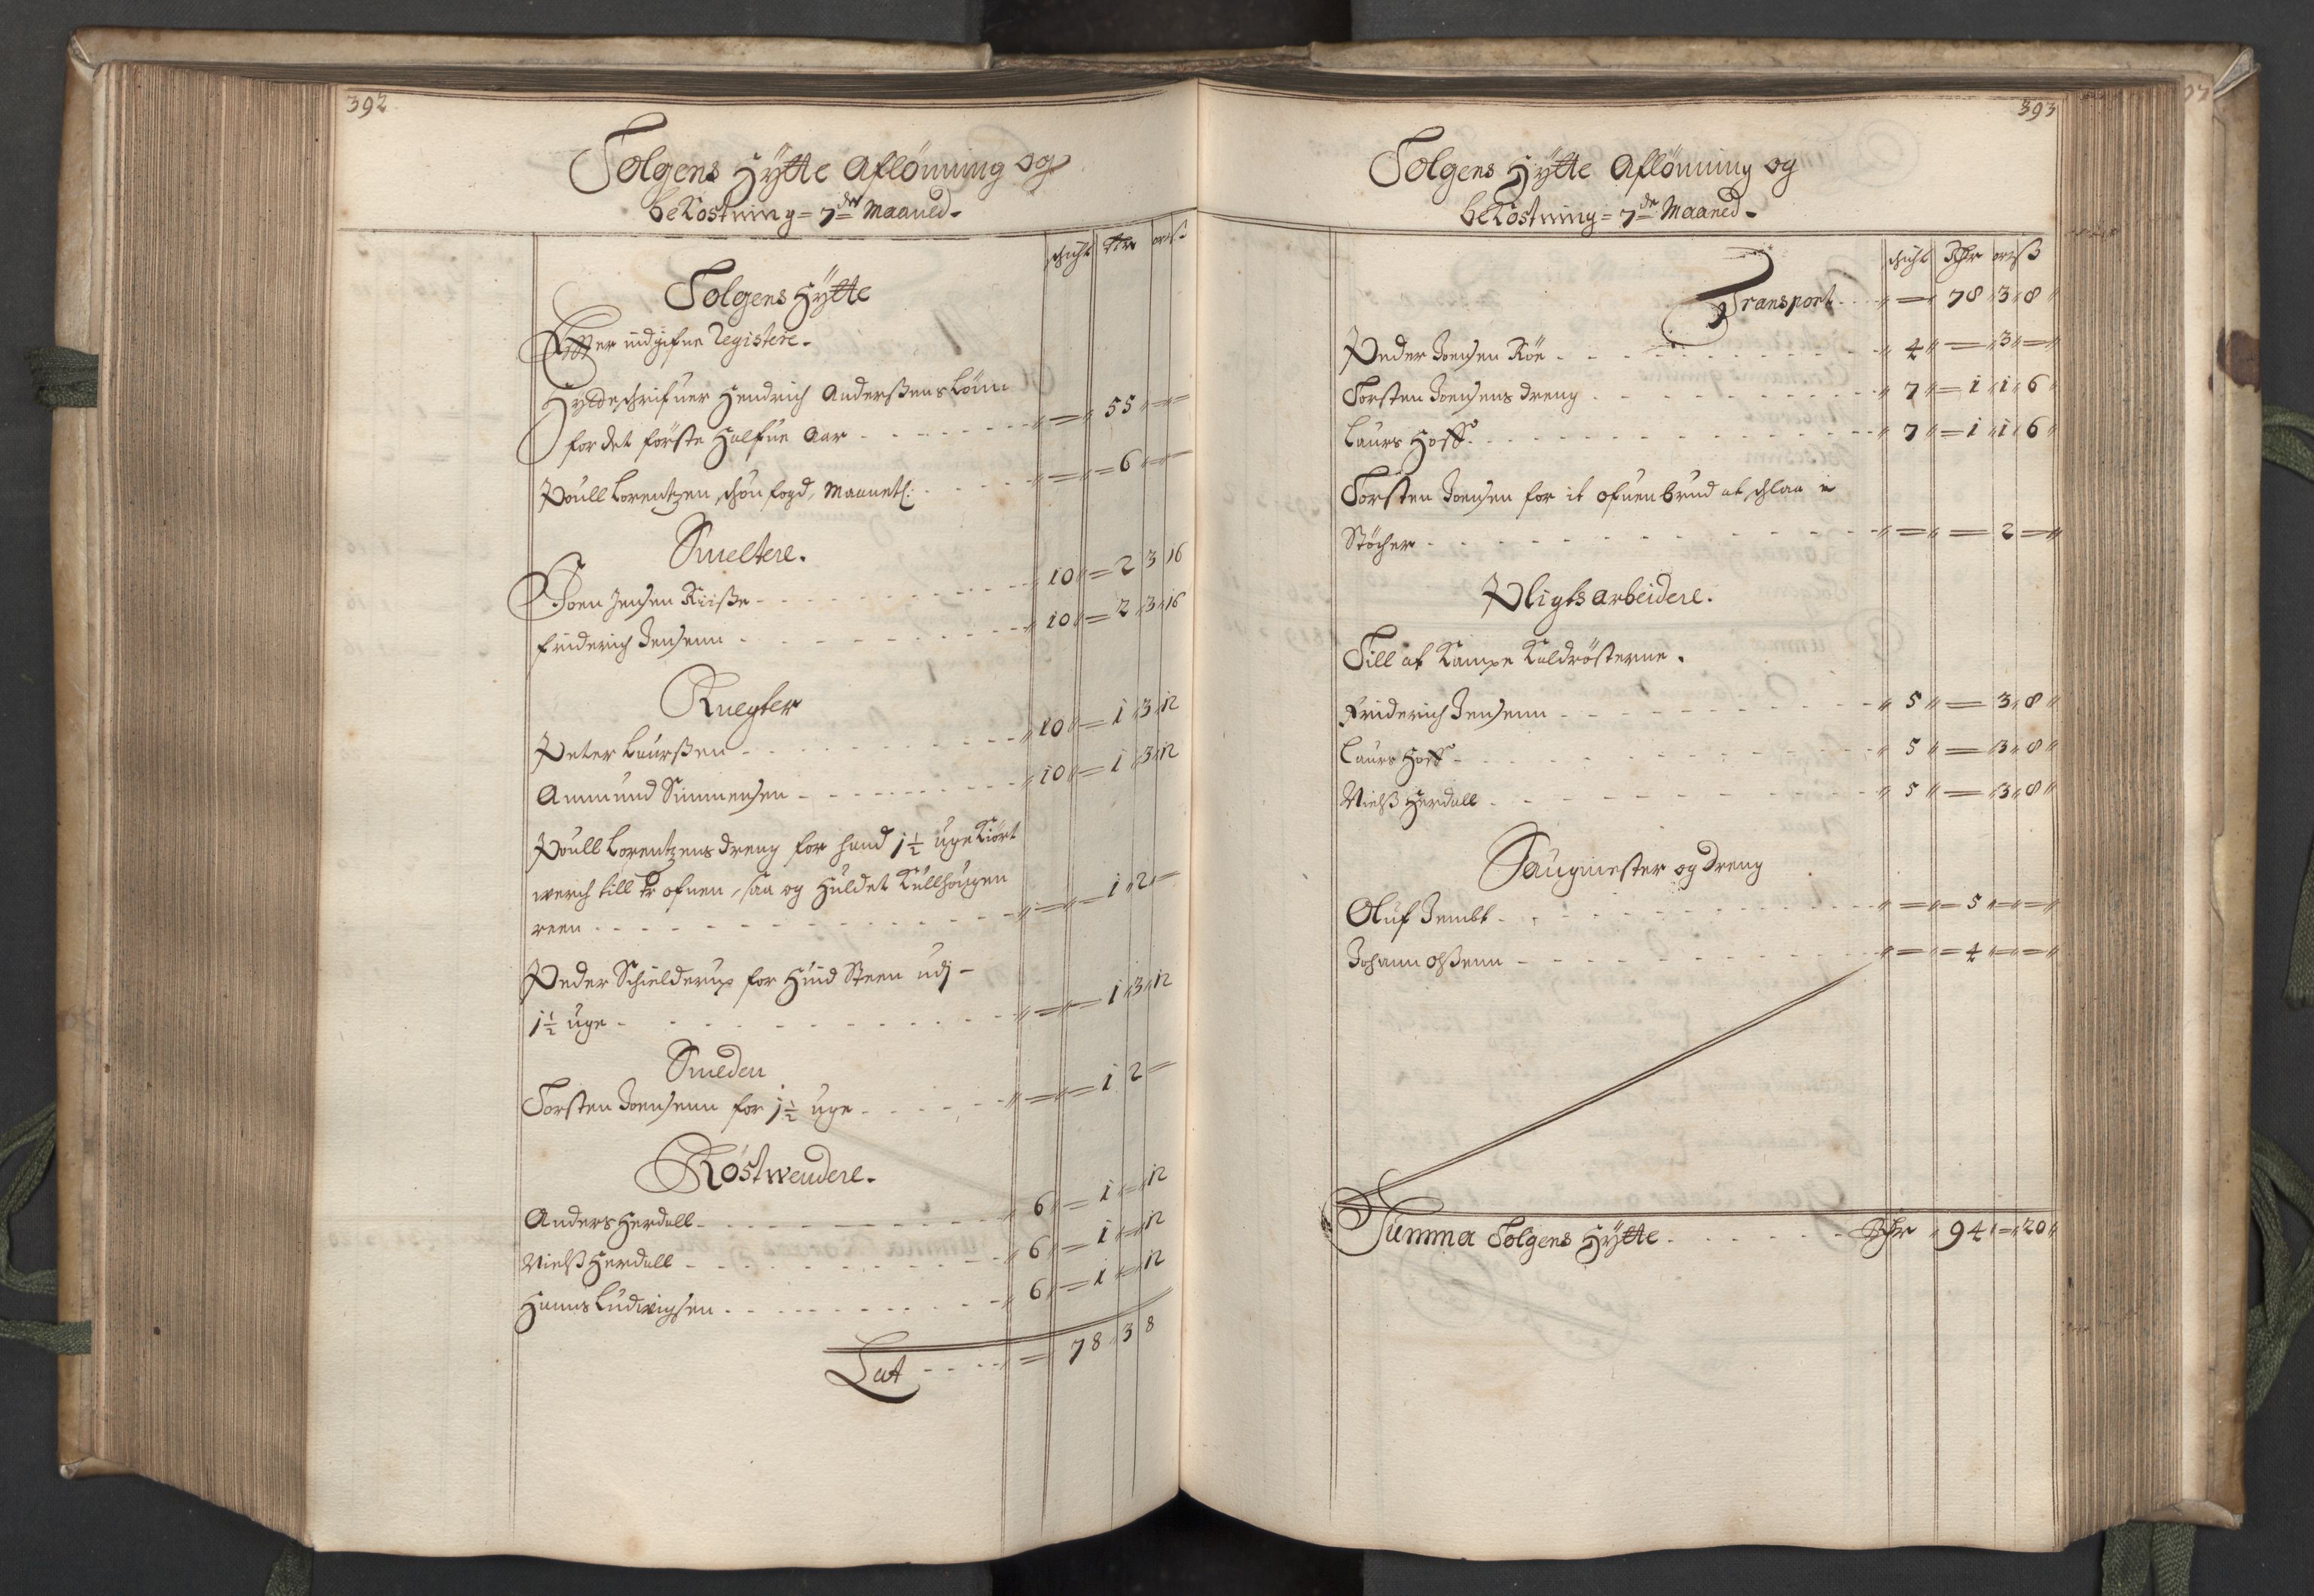 392
Tolgens Hÿtte Aflönning og
beKostning = 7de Maaned-
schicht Rdr ort ß
Tolgens Hÿtte
Effter indgifne Registere.
Hytteschrifuer Hendrich Anderßens Lönn
for det förste Halfue Aar - - - - - - 55
Poull Lorentzen schoufogd, Maanetl: - - - - 6
Smeltere.
Joen Jensen Riiße - - - - - - 10 = 2 3 16
Friderich Jensenn - - - - - - 10 = 2 3 16
Knegter
Peter Laurßen - - - - - - 10 = 1 3 12
Ammund Simmensen - - - - - - 10 = 1 3 12
Poull Lorentzens dreng for hand 1½ uge Kiört
werch till ofnen, saa og Huldet Kullhougen
reen - - - - - - 1 2 =
Peder Schielderup for Hind Steen udj -
1½ uge - - - - - - 1 3 12
Smeden
Torsten Joensenn for 1½ uge - - - - - 1 2 =
Röstwendere.
Anders Herdall - - - - - - 6 = 1 = 12
Nielß Herdall - - - - - - 6 = 1 = 12
Hanns Ludvigsen - - - - - - 6 = 1 = 12
Lat - - - - = 78 3 8
393
Tolgens Hÿtte Aflönning og
beKostning = 7de Maaned-
schicht Rdr ort ß
Transport - - = 78 3 8
Peder Joensen Röe - - - - - - 4 = 3 =
Torsten Joensens dreng - - - - - - 7 = 1 1 6
Laurs Hoff - - - - - - 7 = 1 1 6
Torsten Joensen for it ofuenbrud at schlaa i
Stöcher - - - - - - = = 2 =
Pligtsarbeidere.
Till at Kampe Kaldrösterne.
Friderich Jensenn - - - - - - 5 = 3 8
Laurs Hoff - - - - - - 5 = 3 8
Nielß Herdall - - - - - - 5 = 3 8
Saugmester og dreng
Oluf Jembt - - - - - - = = 5 = =
Johann Olßenn - - - - - - = = 4 = =
Summa Tolgens Hÿtte - - - - - - Rdr 94 = 20